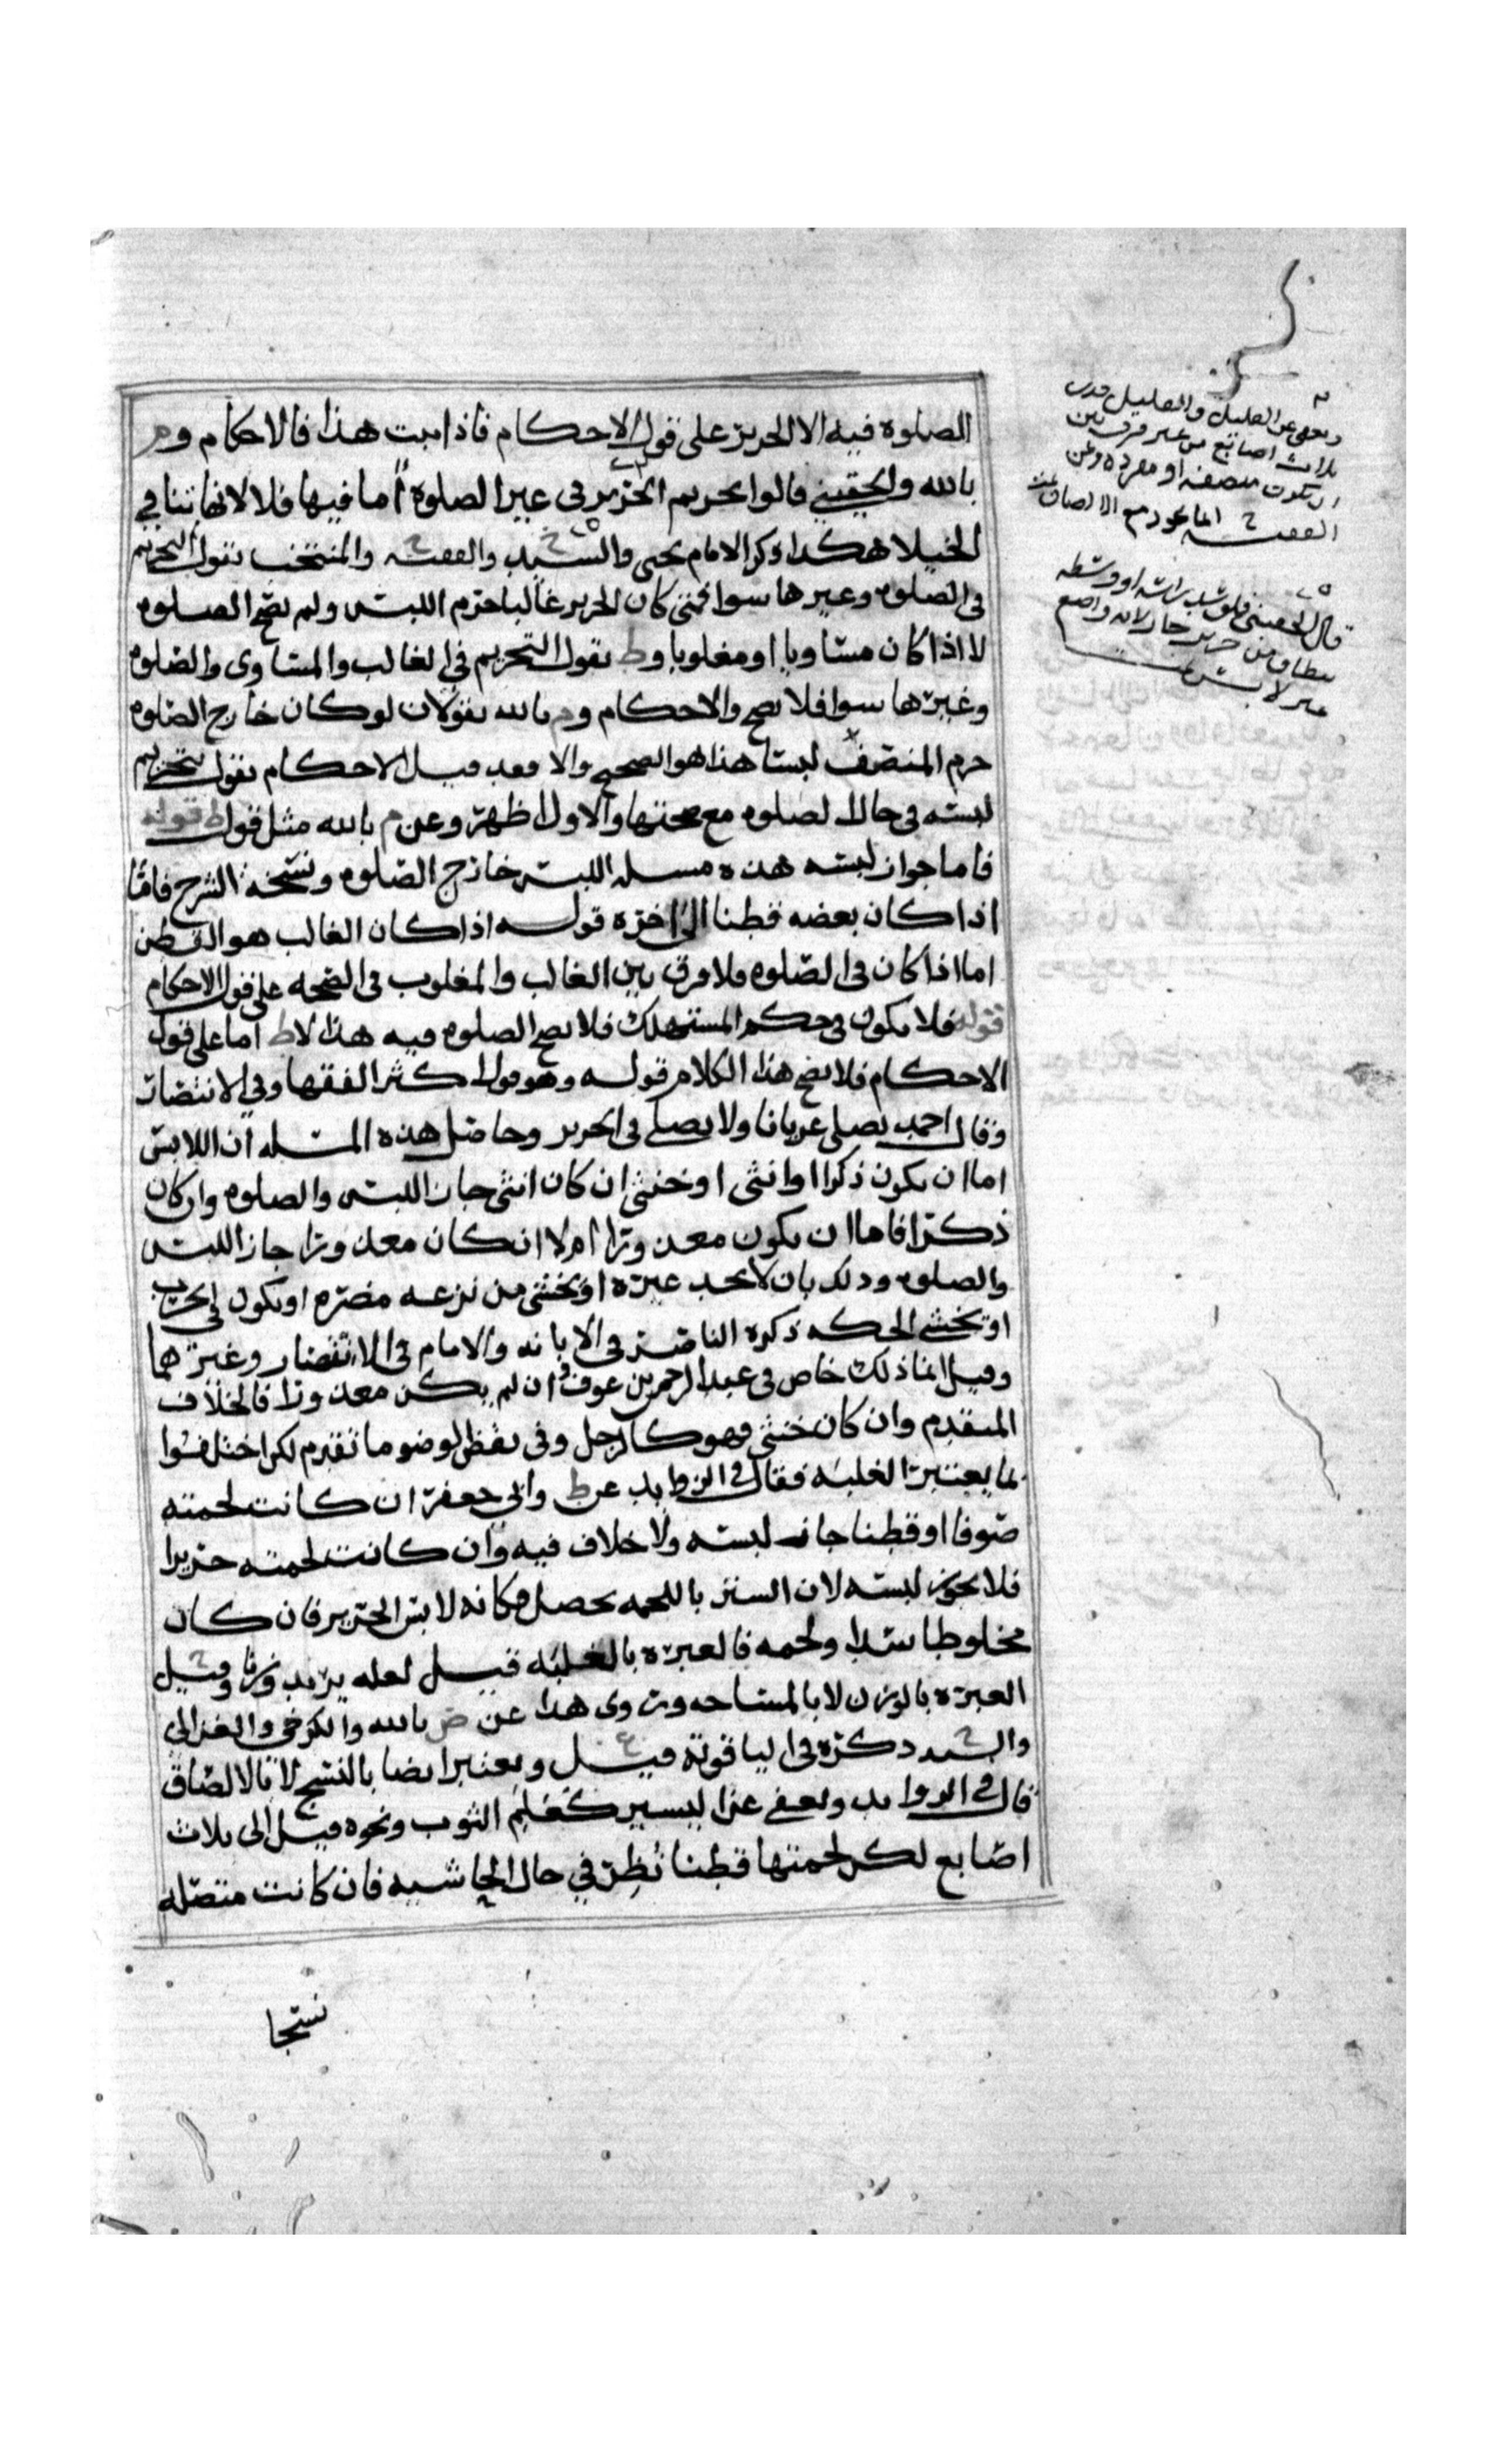 الصلوة فيه الا الحرير على قول الاحكام فاذا ثبت هذا فالاحكام وم
بالله والحقيني قالوا تحريم الحرير في غير الصلوة اما فيها فلا لانها تنافي
الخيلا هكذا ذكر الامام يحيى والسيد ح والفقيه ح والمنتخب نقول التحريم
في الصلوه وغيرها سوا فمتى كان الحرير غالبا حرم اللبس ولم تصح الصلوه
لا اذا كان مساويا او مغلوبا وط نقول التحريم في الغالب والمساوى والصلوه
وغيرها سوا فلا تصح والاحكام وم بالله نقولان لو كان خارج الصلوه
حرم المنصف لبسا هذا هو الصحيح والا فقد قيل الاحكام نقول بتحريم
لبسه في حال الصلوه مع صحتها والاول اظهر وعن م بالله مثل قول ط قوله
فاما جواز لبسه هذه مسله اللبس خارج الصلوه ونسخه الشرح فاما
اذا كان بعضه قطنا الى اخره قوله اذا كان الغالب هو القطن
اما اذا كان في الصلوه فلا فرق بين الغالب والمغلوب في الصحه على قول الاحكام
قوله فلا يكون في حكم المستهلك فلا تصح الصلوه فيه هذا لاط اما على قول
الاحكام فلا يصح هذا الكلام قوله وهو قول اكثر الفقها وفي الانتصار
وقال احمد يصلي عريانا ولا يصلي في الحرير وحاصل هذه المسله ان اللابس
اما ان يكون ذكرا او انثى او خنثى ان كان انثى جاز اللبس والصلوه وان كان
ذكرا فاما ان يكون معذورا ام لا ان كان معذورا جاز اللبس
والصلوه وذلك بان لا يجد غيره او يخشى من نزعه مضره او يكون في الحرب
او يخشى الحكه ذكره الناصر في الابانه والامام في الانتصار وغيرهما
وقيل انما ذلك خاص في عبد الرحمن بن عوف وان لم يكن معذورا فالخلاف
المتقدم وان كان خنثى فهو كالرجل وفي نقض الوضو ما تقدم لكن اختلفوا
بما يعتبر الغلبه فقال في الزوايد عن ط وابي جعفر ان كانت لحمته
صوفا او قطنا جاز لبسه ولا خلاف فيه وان كانت لحمته حريرا
فلا يجوز لبسه لان الستر باللحمه يحصل فكانه لابس الحرير فان كان
مخلوطا سدا ولحمه فالعبره بالغلبه قيل لعله يريد وزنا وقيل ح
العبره بالوزن لا بالمساحه وروى هذا عن ض بالله والكرخي والغزالي
والسيد ح ذكره في الياقوته قيل ع ويعتبر ايضا بالنسج لا بالالصاق
قال في الزوايد ويعفى عن اليسير كعلم الثوب ونحوه قيل الى ثلاث
اصابع لكن لحمتها قطنا نظر في حال الحاشيه فان كانت متصله
نسجا
ويعفى عن القليل والقليل قدر
ثلاث اصابع من غير فرق بين
ان تكون متصله او مفرده وعن
الفقيه ح انما يجوز مع الالصاق
قال الحقيني فلو شد راسه او وسطه
بنطاق من حرير جاز لانه واضع
غير لابس